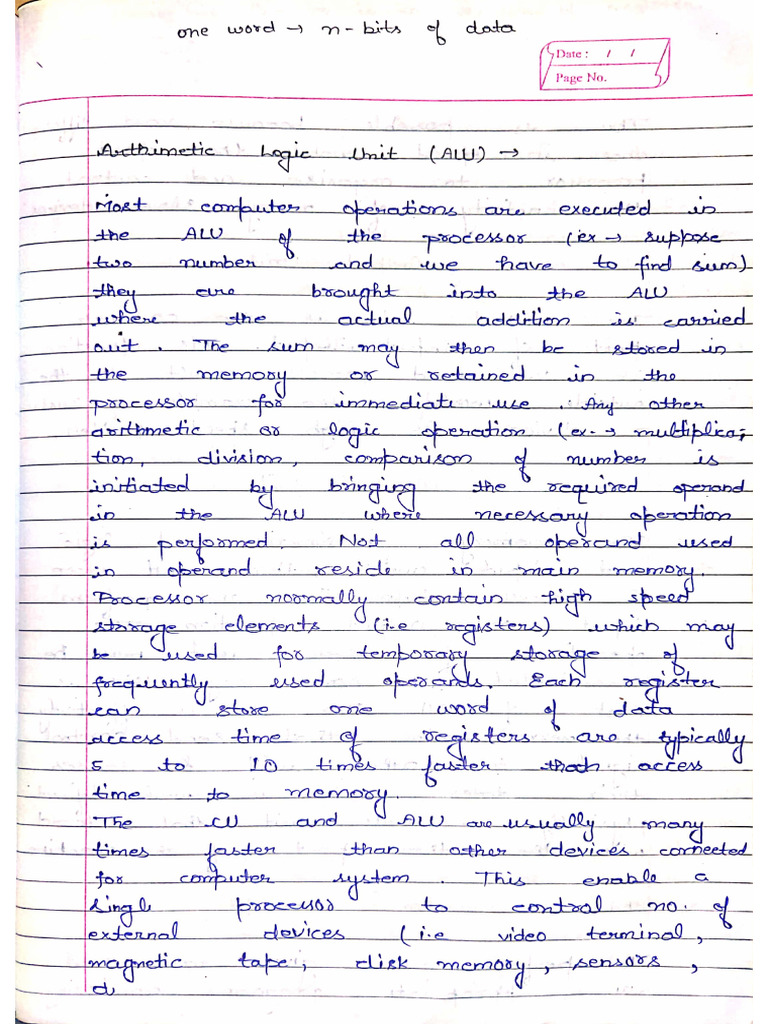 one word → n-bits of data
Date : / /
Page No.
Arthimetic Logic Unit (ALU) →
Most computer operations are executed in
the ALU of the processor (ex → suppose
two number and we have to find sum)
they are brought into the ALU
where the actual addition is carried
out. The sum may then be stored in
the memory or retained in the
processor for immediate use. Any other
arithmetic or logic operation (ex. → multiplica-
tion, division, comparison of number is
initiated by bringing the required operand
in the ALU where necessary operation
is performed. Not all operand used
in operand reside in main memory.
Processor normally contain high speed
storage elements (i.e registers) which may
be used for temporary storage of
frequently used operands. Each register
can store one word of data
access time of registers are typically
5 to 10 times faster than access
time to memory.
The CU and ALU are usually many
times faster than other devices connected
for computer system. This enable a
single processor to control no. of
external devices (i.e video terminal,
magnetic tape, disk memory, sensors,
d